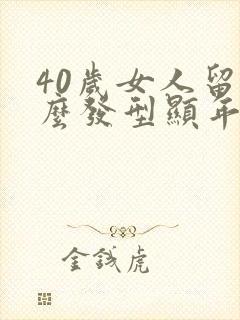 40歲女人留
麼發型顯年
金錢虎